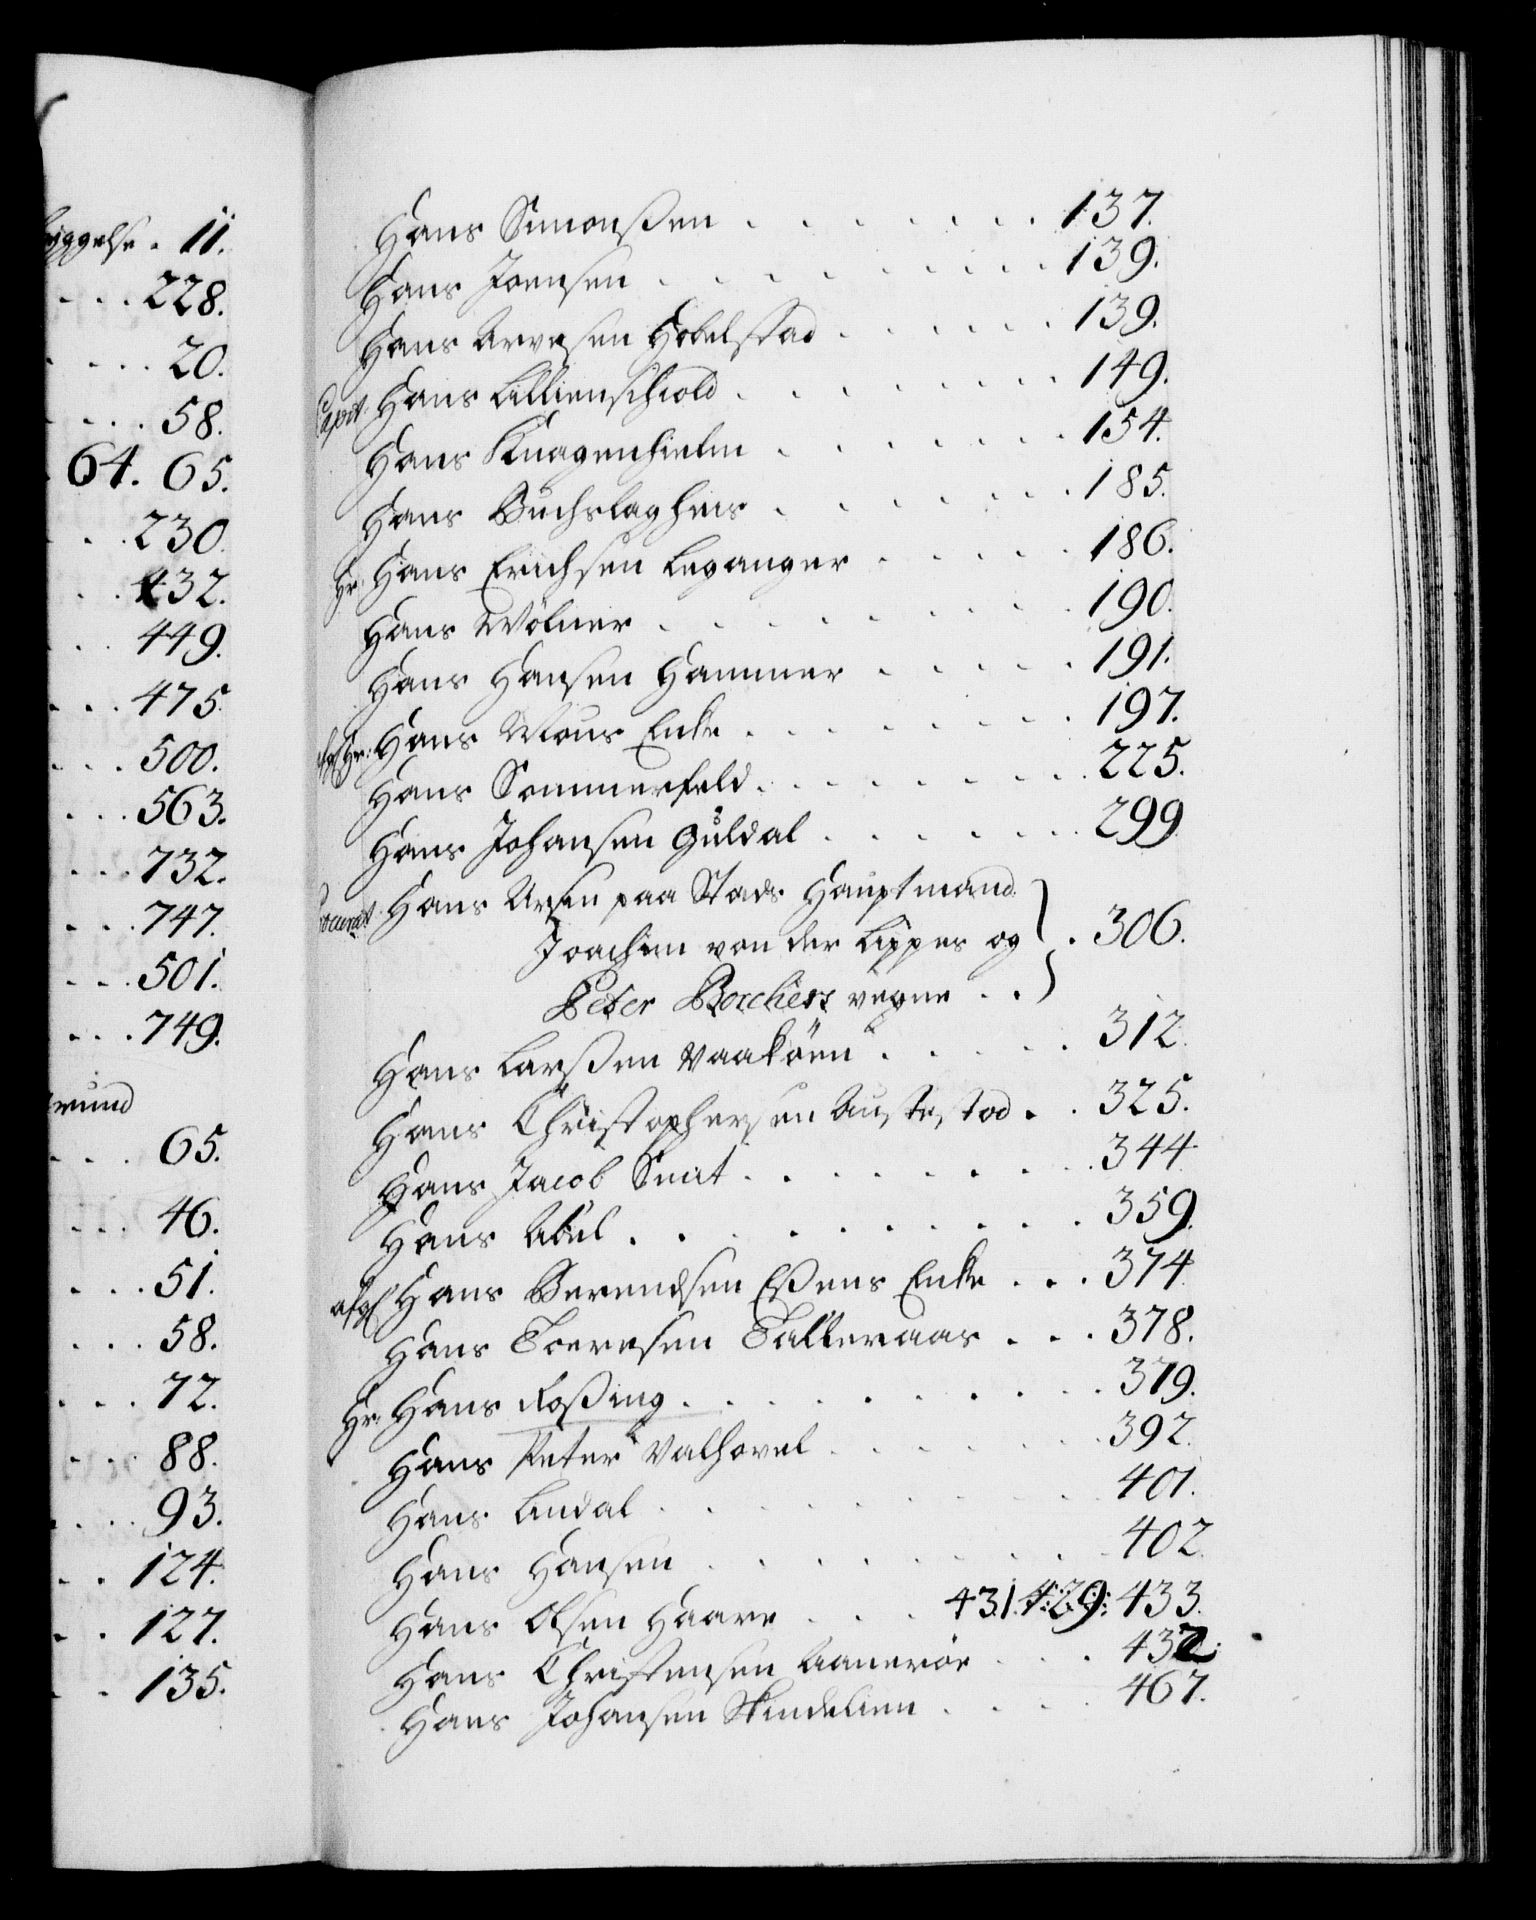 yggelse . 11.
. . . 228.
. . . . 20.
. . . . 58.
. 64. 65.
. . . 230.
. . . 432.
. . . 449.
. . . 475.
. . . 500.
. . . 563.
. . . 732.
. . . 747.
. . . 501.
. . . 749.
grund
. . . 65.
. . . 46.
. . . 51.
. . . 58.
. . . 72.
. . . 88.
. . . 93.
. . 124.
. . 127.
. . 135.
Hans Simonßen . . . . . . . 137.
Hans Joensen . . . . . . . . 139.
Hans Arvesen Hobelstad . . . . . . 139.
Capit. Hans Lillienschiold . . . . . . . 149.
Hans Knagenhielm . . . . . . . 154.
Hans Buchslagheis . . . . . . . 185.
Hr. Hans Erichsen Leganger . . . . . 186.
Hans Wölner . . . . . . . . 190.
Hans Hansen Hammer . . . . . 191.
Hr: Hans Mous Enke . . . . . . . 197.
Hans Sommerfeld . . . . . . . 225.
Hans Johansen Guldal . . . . . . 299
Procurat. Hans Ursin paa Stads Hauptmand
Joachim von der Lippes og . 306.
Peter Borchers vegne . .
Hans Larßen Vaaköen . . . . . 312.
Hans Christophersen Austestod . . 325.
Hans Jacob Smit . . . . . . . . 344
Hans Abel . . . . . . . . . 359.
afgl Hans Berendsen Eßens Enke . . . 374
Hans Toeresen Talleraas . . . 378.
Hr. Hans Roßing . . . . . . . . . 379.
Hans Peter Valhovel . . . . . . 392.
Hans Lindal . . . . . . . . . 401.
Hans Hansen . . . . . . . . 402.
Hans Olsen Haare . . . 431. 429: 433.
Hans Christensen Aaneröe . . . 432.
Hans Johansen Skindelien . . . . 467.